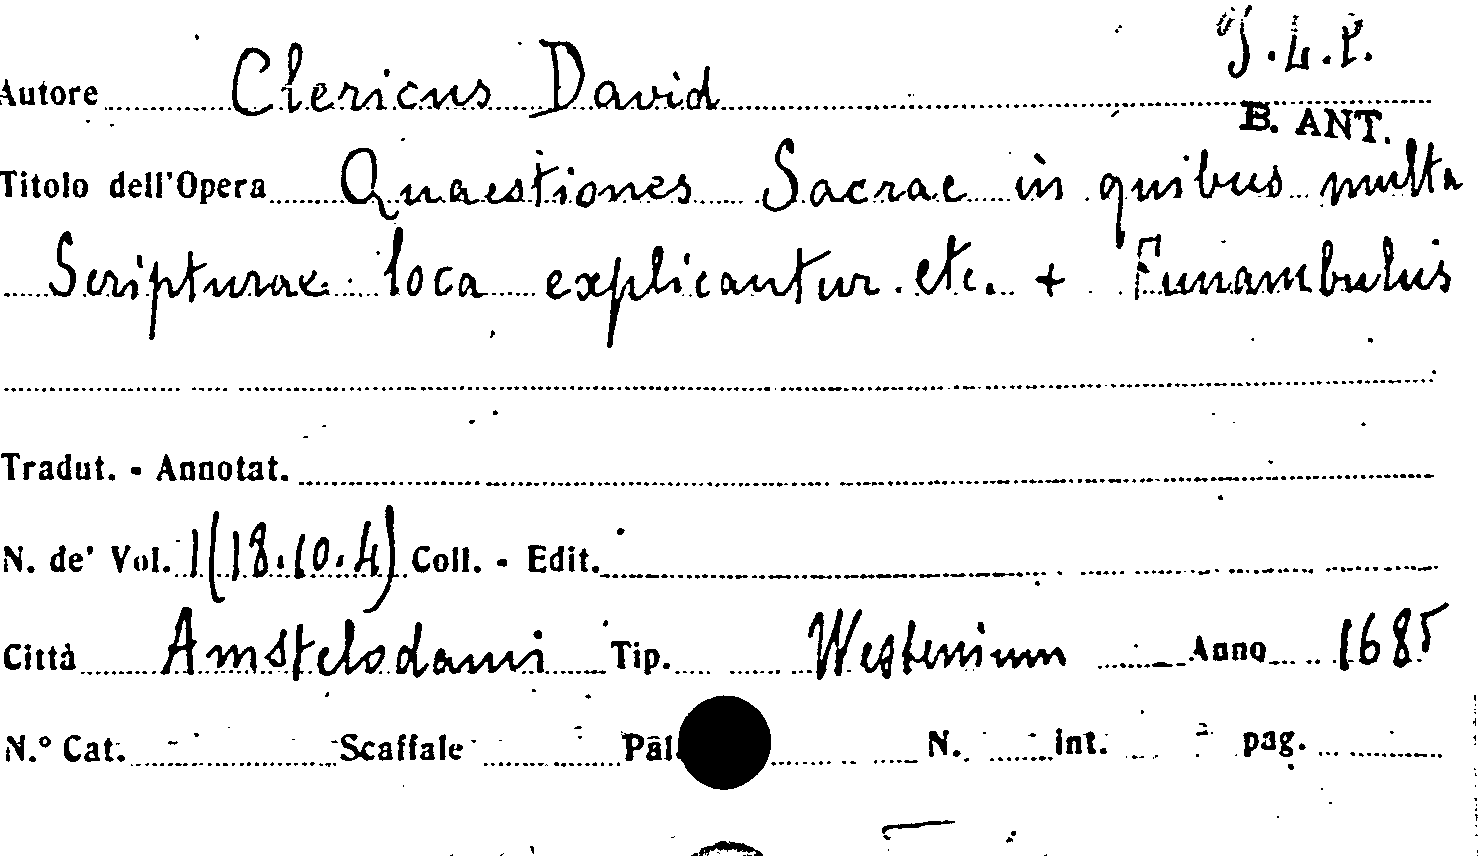 J.L.P.
Autore Clericus David
B. ANT.
Titolo dell'Opera Quaestiones Sacrae in quibus multa
Scripturae loca explicantur. etc. + Funambulus
Tradut. - Annotat.
N. de' Vol. 1(18.10.4) Coll. - Edit.
Città Amstelodami Tip. Westenium Anno 1685
N.° Cat. Scaffale Pal. N. int. pag.